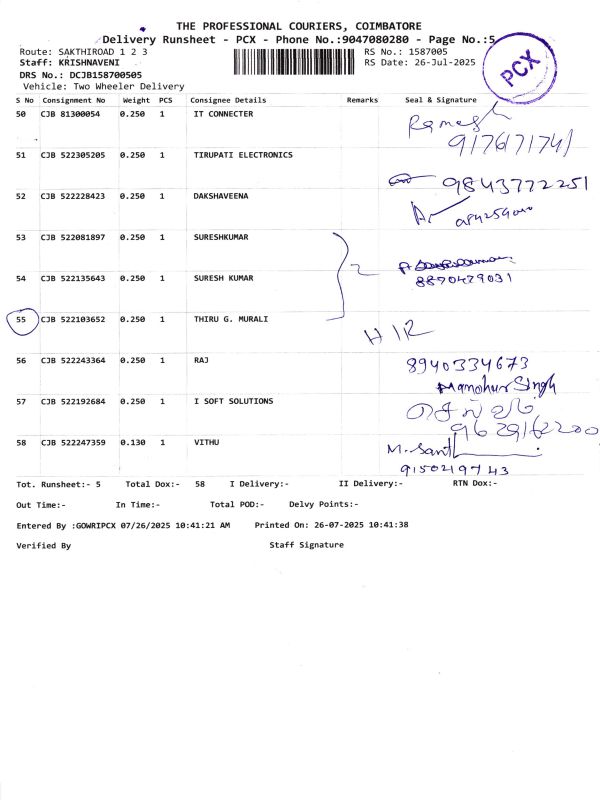 THE PROFESSIONAL COURIERS, COIMBATORE
Delivery Runsheet - PCX - Phone No.:9047080280 - Page No.:5
Route: SAKTHIROAD 1 2 3
RS No.: 1587005
Staff: KRISHNAVENI
RS Date: 26-Jul-2025
PCX
DRS No.: DCJB158700505
Vehicle: Two Wheeler Delivery
S No Consignment No Weight PCS Consignee Details Remarks Seal & Signature
50 CJB 81300054 0.250 1 IT CONNECTER Ramesh
917617174/
51 CJB 522305205 0.250 1 TIRUPATI ELECTRONICS
9843772251
52 CJB 522228423 0.250 1 DAKSHAVEENA
53 CJB 522081897 0.250 1 SURESHKUMAR
54 CJB 522135643 0.250 1 SURESH KUMAR 8870429031
55 CJB 522103652 0.250 1 THIRU G. MURALI
H IR
56 CJB 522243364 0.250 1 RAJ 8940334673
Manohur Singh
57 CJB 522192684 0.250 1 I SOFT SOLUTIONS
58 CJB 522247359 0.130 1 VITHU M. Sant
9150219743
Tot. Runsheet:- 5 Total Dox:- 58 I Delivery:- II Delivery:- RTN Dox:-
Out Time:- In Time:- Total POD:- Delvy Points:-
Entered By :GOWRIPCX 07/26/2025 10:41:21 AM Printed On: 26-07-2025 10:41:38
Verified By Staff Signature